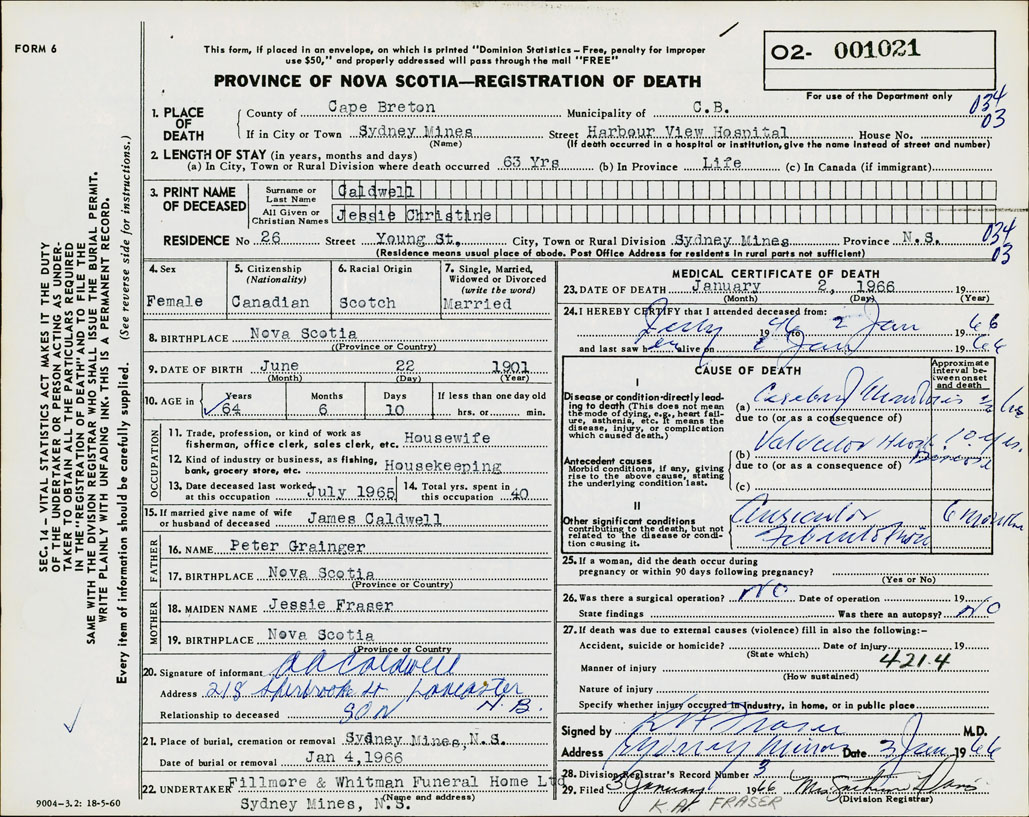 FORM 6
This form, if placed in an envelope, on which is printed "Dominion Statistics – Free, penalty for improper
use $50," and properly addressed will pass through the mail "FREE"
PROVINCE OF NOVA SCOTIA—REGISTRATION OF DEATH
02- 001021
For use of the Department only
034
03
1. PLACE OF DEATH
County of Cape Breton Municipality of C.B.
If in City or Town Sydney Mines Street Harbour View Hospital House No.
(Name) (If death occurred in a hospital or institution, give the name instead of street and number)
2. LENGTH OF STAY (in years, months and days)
(a) In City, Town or Rural Division where death occurred 63 Yrs (b) In Province Life (c) In Canada (if immigrant)
3. PRINT NAME OF DECEASED
Surname or Last Name Caldwell
All Given or Christian Names Jessie Christine
RESIDENCE No 26 Street Young St, City, Town or Rural Division Sydney Mines Province N.S.
(Residence means usual place of abode. Post Office Address for residents in rural parts not sufficient)
034
03
4. Sex Female
5. Citizenship (Nationality) Canadian
6. Racial Origin Scotch
7. Single, Married, Widowed or Divorced (write the word) Married
8. BIRTHPLACE Nova Scotia
(Province or Country)
9. DATE OF BIRTH June 22 1901
(Month) (Day) (Year)
10. AGE in Years Months Days If less than one day old
64 6 10 hrs. or min.
OCCUPATION
11. Trade, profession, or kind of work as fisherman, office clerk, sales clerk, etc. Housewife
12. Kind of industry or business, as fishing, bank, grocery store, etc. Housekeeping
13. Date deceased last worked at this occupation July 1965
14. Total yrs. spent in this occupation 40
15. If married give name of wife or husband of deceased James Caldwell
FATHER
16. NAME Peter Grainger
17. BIRTHPLACE Nova Scotia
(Province or Country)
MOTHER
18. MAIDEN NAME Jessie Fraser
19. BIRTHPLACE Nova Scotia
(Province or Country)
20. Signature of informant Caldwell
Address 218 Sherbrooke St Lancaster N.B.
Relationship to deceased SON
21. Place of burial, cremation or removal Sydney Mines, N.S.
Date of burial or removal Jan 4,1966
22. UNDERTAKER Fillmore & Whitman Funeral Home Ltd
Sydney Mines, N.S.
(Name and address)
MEDICAL CERTIFICATE OF DEATH
23. DATE OF DEATH January 2, 1966 19
(Month) (Day) (Year)
24. I HEREBY CERTIFY that I attended deceased from:
1946 2 Jan 1966
and last saw her alive on 2 Jan 1966
CAUSE OF DEATH
Approximate interval between onset and death
I
Disease or condition directly leading to death (This does not mean the mode of dying, e.g., heart failure, asthenia, etc. It means the disease, injury, or complication which caused death.)
(a)
due to (or as a consequence of)
Antecedent causes
Morbid conditions, if any, giving rise to the above cause, stating the underlying condition last.
(b) Valvular Heart Disease 10 yrs.
due to (or as a consequence of)
(c)
II
Other significant conditions contributing to the death, but not related to the disease or condition causing it.
Auricular Fibrillation 6 months
25. If a woman, did the death occur during
pregnancy or within 90 days following pregnancy?
(Yes or No)
26. Was there a surgical operation? NO Date of operation 19
State findings Was there an autopsy? NO
27. If death was due to external causes (violence) fill in also the following:–
Accident, suicide or homicide? Date of injury 19
(State which)
421.4
Manner of injury
(How sustained)
Nature of injury
Specify whether injury occurred in industry, in home, or in public place
Signed by Fraser M.D.
Address Sydney Mines Date 3 Jan 1966
28. Division Registrar's Record Number 3
29. Filed 3 January 1966 Mrs. Davis
(Division Registrar)
K.A. FRASER
SEC. 14 – VITAL STATISTICS ACT MAKES IT THE DUTY
OF THE UNDERTAKER OR PERSON ACTING AS UNDER-
TAKER TO OBTAIN ALL THE PARTICULARS REQUIRED
IN THE "REGISTRATION OF DEATH" AND TO FILE THE
SAME WITH THE DIVISION REGISTRAR WHO SHALL ISSUE THE BURIAL PERMIT.
WRITE PLAINLY WITH UNFADING INK. THIS IS A PERMANENT RECORD.
Every item of information should be carefully supplied. (See reverse side for instructions.)
9004–3.2: 18-5-60